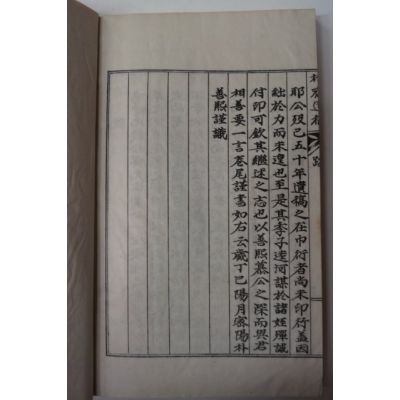 耶公歿已五十年遺稿之在巾衍者尚未印行蓋因
絀於力而未遑也至是其季子逵河謀於諸姪殫誠
付印可欽其繼述之志也以善熙慕公之深而與君
相善要一言卷尾謹書如右云歲丁巳陽月密陽朴
善熙謹識